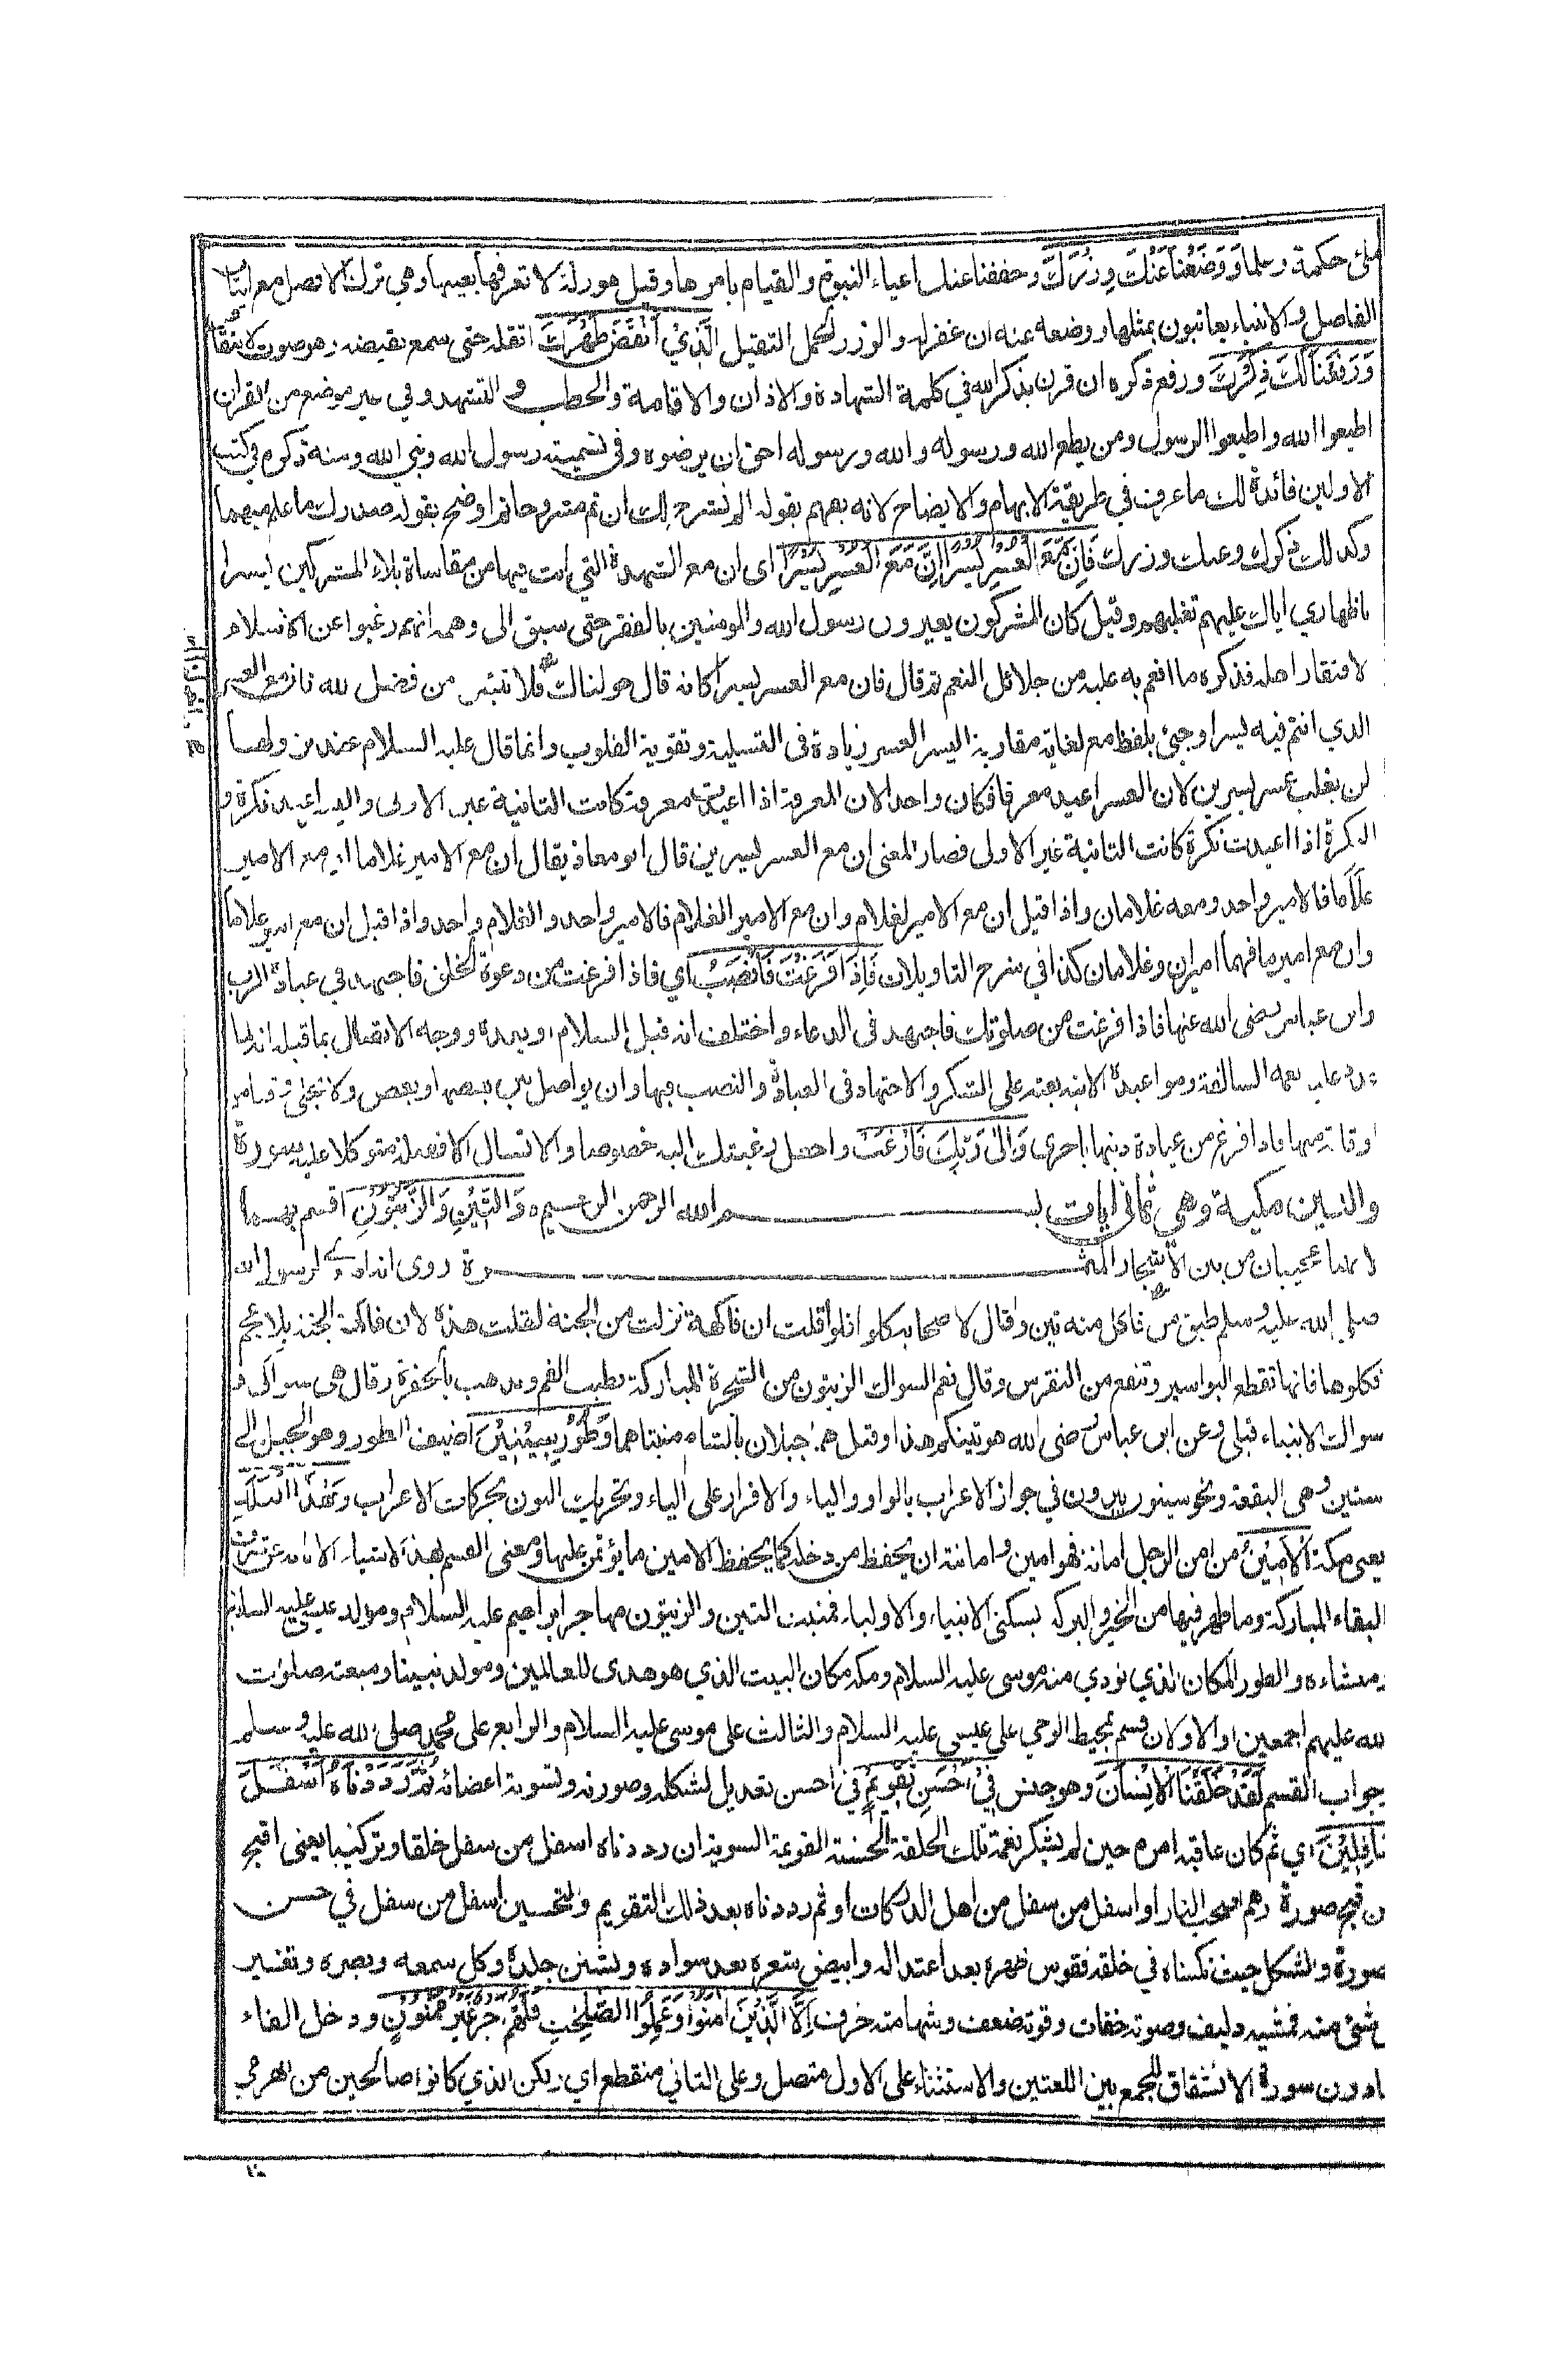 ملئ حكمة وعلما وَوَضَعْنَا عَنْكَ وِزْرَكَ وخففنا عنك اعباء النبوة والقيام بامرها وقيل هو زلة لا تعرف بعينها وهي ترك الافضل مع اتيان
الفاضل والانبياء يعاتبون بمثلها ووضعه عنه ان غفر له والوزر الحمل الثقيل الَّذِيْ اَنْقَضَ ظَهْرَكَ اثقله حتى سمع نقيضه وهو صوت الانتقاض
وَرَفَعْنَا لَكَ ذِكْرَكَ ورفع ذكره ان قرن بذكر الله في كلمة الشهادة والاذان والاقامة والخطب والتشهد وفي غير موضع من القرآن
اطيعوا الله واطيعوا الرسول ومن يطع الله ورسوله والله ورسوله احق ان يرضوه وفي تسميته رسول الله ونبي الله ومنه ذكره في كتب
الاولين فائدة لك ما عرف في طريقة الابهام والايضاح لانه يفهم بقوله الم نشرح لك ان ثم مشروحا ثم اوضح بقوله صدرك ما علم مبهما
وكذلك ذكرك وعنك وزرك فَاِنَّ مَعَ الْعُسْرِ يُسْرًا اِنَّ مَعَ الْعُسْرِ يُسْرًا اى ان مع الشدة التي انت فيها من مقاساة بلاء المشركين يسرا
باظهاري اياك عليهم تغلبهم وقيل كان المشركون يعيرون رسول الله والمومنين بالفقر حتى سبق الى وهمه انهم رغبوا عن الاسلام
لافتقار اهله فذكره ما انعم به عليه من جلائل النعم ثم قال فان مع العسر يسرا كانه قال خولناك فلا تيئس من فضل الله فان مع العسر
الذي انتم فيه يسرا وجئ بلفظ مع لغاية مقاربة اليسر العسر زيادة فى التسلية وتقوية القلوب وانما قال عليه السلام عند نزولها
لن يغلب عسر يسرين لان العسر اعيد معرفا فكان واحدا لان المعرفة اذا اعيدت معرفة كانت الثانية عين الاولى واليسر اعيد نكرة و
النكرة اذا اعيدت نكرة كانت الثانية غير الاولى فصار المعنى ان مع العسر يسرين قال ابو معاذ يقال ان مع الامير غلاما ان مع الامير
غلاما فالامير واحد ومعه غلامان واذا قيل ان مع الامير لغلام وان مع الامير الغلام فالامير واحد والغلام واحد واذا قيل ان مع امير غلاما
وان مع امير ما فهما اميران وغلامان كذا في شرح التاويلات فَاِذَا فَرَغْتَ فَانْصَبْ اي فاذا فرغت من دعوة الخلق فاجتهد في عبادة الرب
وابن عباس رضى الله عنهما فاذا فرغت من صلوتك فاجتهد فى الدعاء واختلف انه قبل السلام او بعده ووجه الاتصال بما قبله انه لما
عدد عليه نعمه السالفة ومواعيده الاتية بعثه على الشكر والاجتهاد فى العبادة والنصب فيها وان يواصل بين بعضها وبعض ولا يخلى وقتا من
اوقاته منها فاذا فرغ من عبادة ذنبها باخرى وَاِلٰى رَبِّكَ فَارْغَبْ واجعل رغبتك اليه خصوصا ولا تسال الا فضله متوكلا عليه سورة
والتين مكية وهي ثماني ايات بسم الله الرحمن الرحيم وَالتِّيْنِ وَالزَّيْتُوْنِ اقسم بهما
لانهما عجيبان من بين الاشجار المثمرة روى انه اهدي لرسول الله
صلى الله عليه وسلم طبق من تين فاكل منه وقال لاصحابه كلوا فلو قلت ان فاكهة نزلت من الجنة لقلت هذه لان فاكهة الجنة بلا عجم
فكلوها فانها تقطع البواسير وتنفع من النقرس وقال نعم السواك الزيتون من الشجرة المباركة يطيب الفم ويذهب بالحفرة وقال هى سواكى و
سواك الانبياء قبلى وعن ابن عباس رضى الله هو تينكم هذا وقيل هما جبلان بالشام منبتاهما وَطُوْرِ سِيْنِيْنَ اضيف الطور وهو الجبل الى
سنين وهى البقعة ونحو سينون يبرون في جواز الاعراب بالواو والياء والاقرار على الياء وتحريك النون بحركات الاعراب وَهٰذَا الْبَلَدِ
يعنى مكة الْاَمِيْنِ من امن الرجل امانة فهو امين وامانته ان يحفظ من دخله كما يحفظ الامين ما يؤتمن عليه ومعنى القسم بهذه الاشياء الابانة عن شرف
البقاع المباركة وما ظهر فيها من الخير والبركة بسكنى الانبياء والاولياء فمنبت التين والزيتون مهاجر ابراهيم عليه السلام ومولد عيسى عليه السلام
ومنشاءه والطور المكان الذي نودي منه موسى عليه السلام ومكة مكان البيت الذي هو هدى للعالمين ومولد نبينا ومبعثه صلوات
الله عليهم اجمعين او الاولان قسم بمهبط الوحي على عيسى عليه السلام والثالث على موسى عليه السلام والرابع على محمد صلى الله عليه وسلم
جواب القسم لَقَدْ خَلَقْنَا الْاِنْسَانَ وهو جنس فِيْ اَحْسَنِ تَقْوِيْمٍ في احسن تعديل لشكله وصورته وتسوية اعضائه ثُمَّ رَدَدْنَاهُ اَسْفَلَ
سَافِلِيْنَ اي ثم كان عاقبة امره حين لم يشكر نعمة تلك الخلقة الحسنة القويمة السوية ان رددناه اسفل من سفل خلقا وتركيبا يعنى اقبح
من قبح صورة وهم اصحاب النار او اسفل من سفل من اهل الدركات او ثم رددناه بعد ذلك التقويم والتحسين اسفل من سفل في حسن
صورة والشكل حيث نكسناه في خلقه فقوس ظهره بعد اعتداله وابيض شعره بعد سواده وتشنن جلده وكل سمعه وبصره وتغير
كل شئ منه فمشيه دليف وصوته خفات وقوته ضعف وشهامته خرف اِلَّا الَّذِيْنَ اٰمَنُوْا وَعَمِلُوا الصّٰلِحٰتِ فَلَهُمْ اَجْرٌ غَيْرُ مَمْنُوْنٍ ودخل الفاء
هنا دون سورة الانشقاق للجمع بين اللغتين والاستثناء على الاول متصل وعلى الثاني منقطع اي ولكن الذي كانوا صالحين من الهرمى